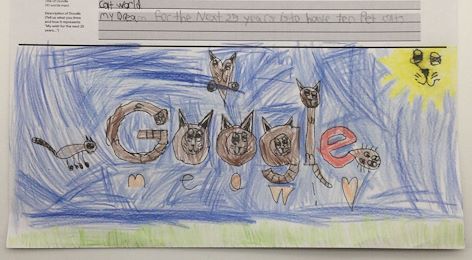 Cat world
Description of Doodle
(Tell us what you drew
and how it represents
"My wish for the next 25
years...")
My Dream for the Next 25 years is to have ten Pet cats
Google
meow